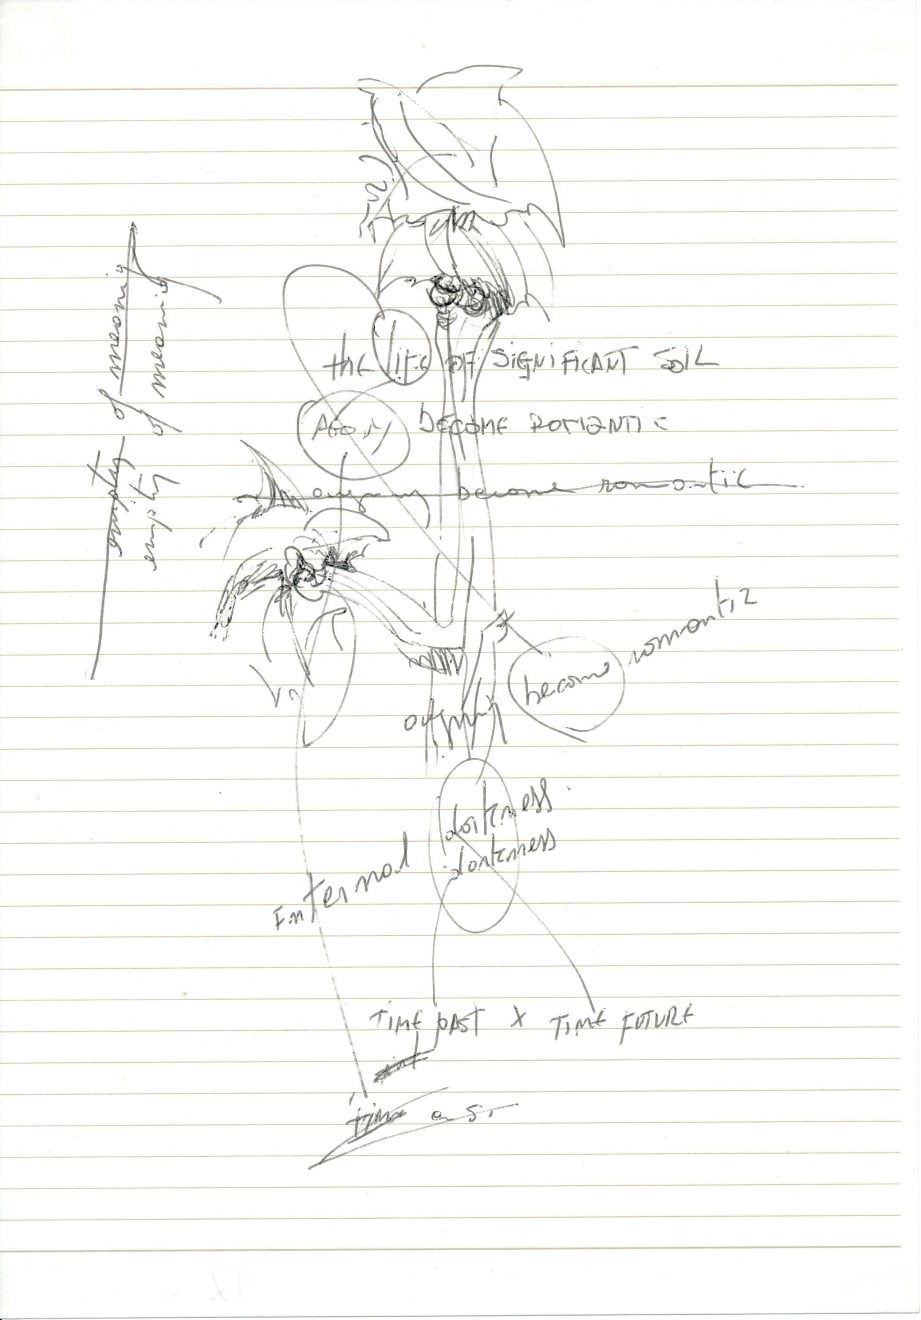 empty of meaning
empty of meaning
the life OF SIGNIFICANT SOIL
AGONY BECOME ROMANTIC
become romantic
become romantiz
Internal darkness
darkness
TIME PAST X TIME FUTURE
time